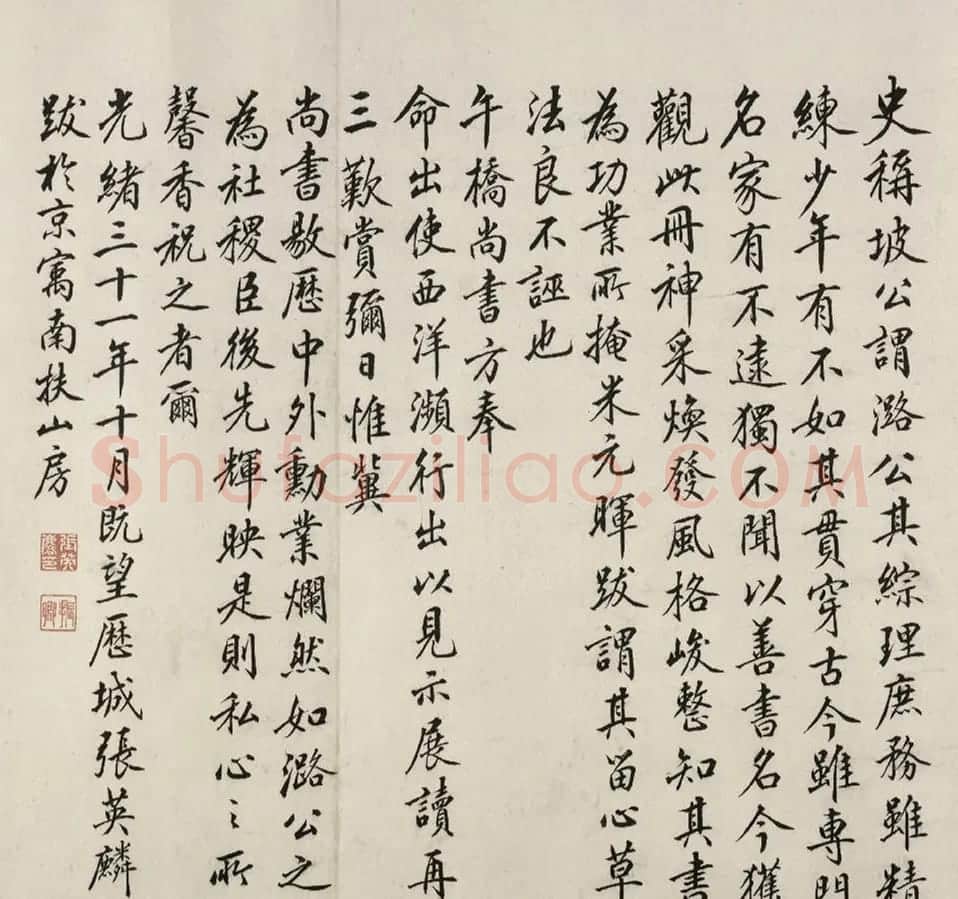 史稱坡公謂潞公其綜理庶務雖精
練少年有不如其貫穿古今雖專門
名家有不逮獨不聞以善書名今獲
觀此冊神采煥發風格峻整知其書
為功業所掩米元暉跋謂其留心草
法良不誣也
午橋尚書方奉
命出使西洋瀕行出以見示展讀再
三歎賞彌日惟冀
尚書敭歷中外勳業爛然如潞公之
為社稷臣後先輝映是則私心之所
馨香祝之者爾
光緒三十一年十月既望歷城張英麟
跋於京寓南扶山房
Shufaziliao.com